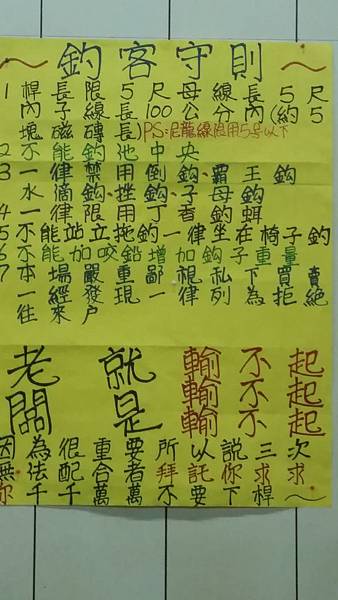 ～釣客守則～
1桿長限5尺母線長5尺
內子線100公分內(約5
塊磁磚長)PS:尼龍線限用5号以下
2不能釣池中央
3一律禁用倒鈎、霸王鈎
水滴鈎、挫鈎、子母鈎
4一律限用丁香釣
5不能站立拖釣一律坐在椅子釣
6不能加咬鉛增加鈎子重量
7本場嚴重鄙視私下買賣
一經發現一律列為拒絕
往來戶
老闆就是
輸不起
輸不起
輸不起
因為很重要所以說三次
無法配合者拜託你求求
你千千萬萬不要下桿～